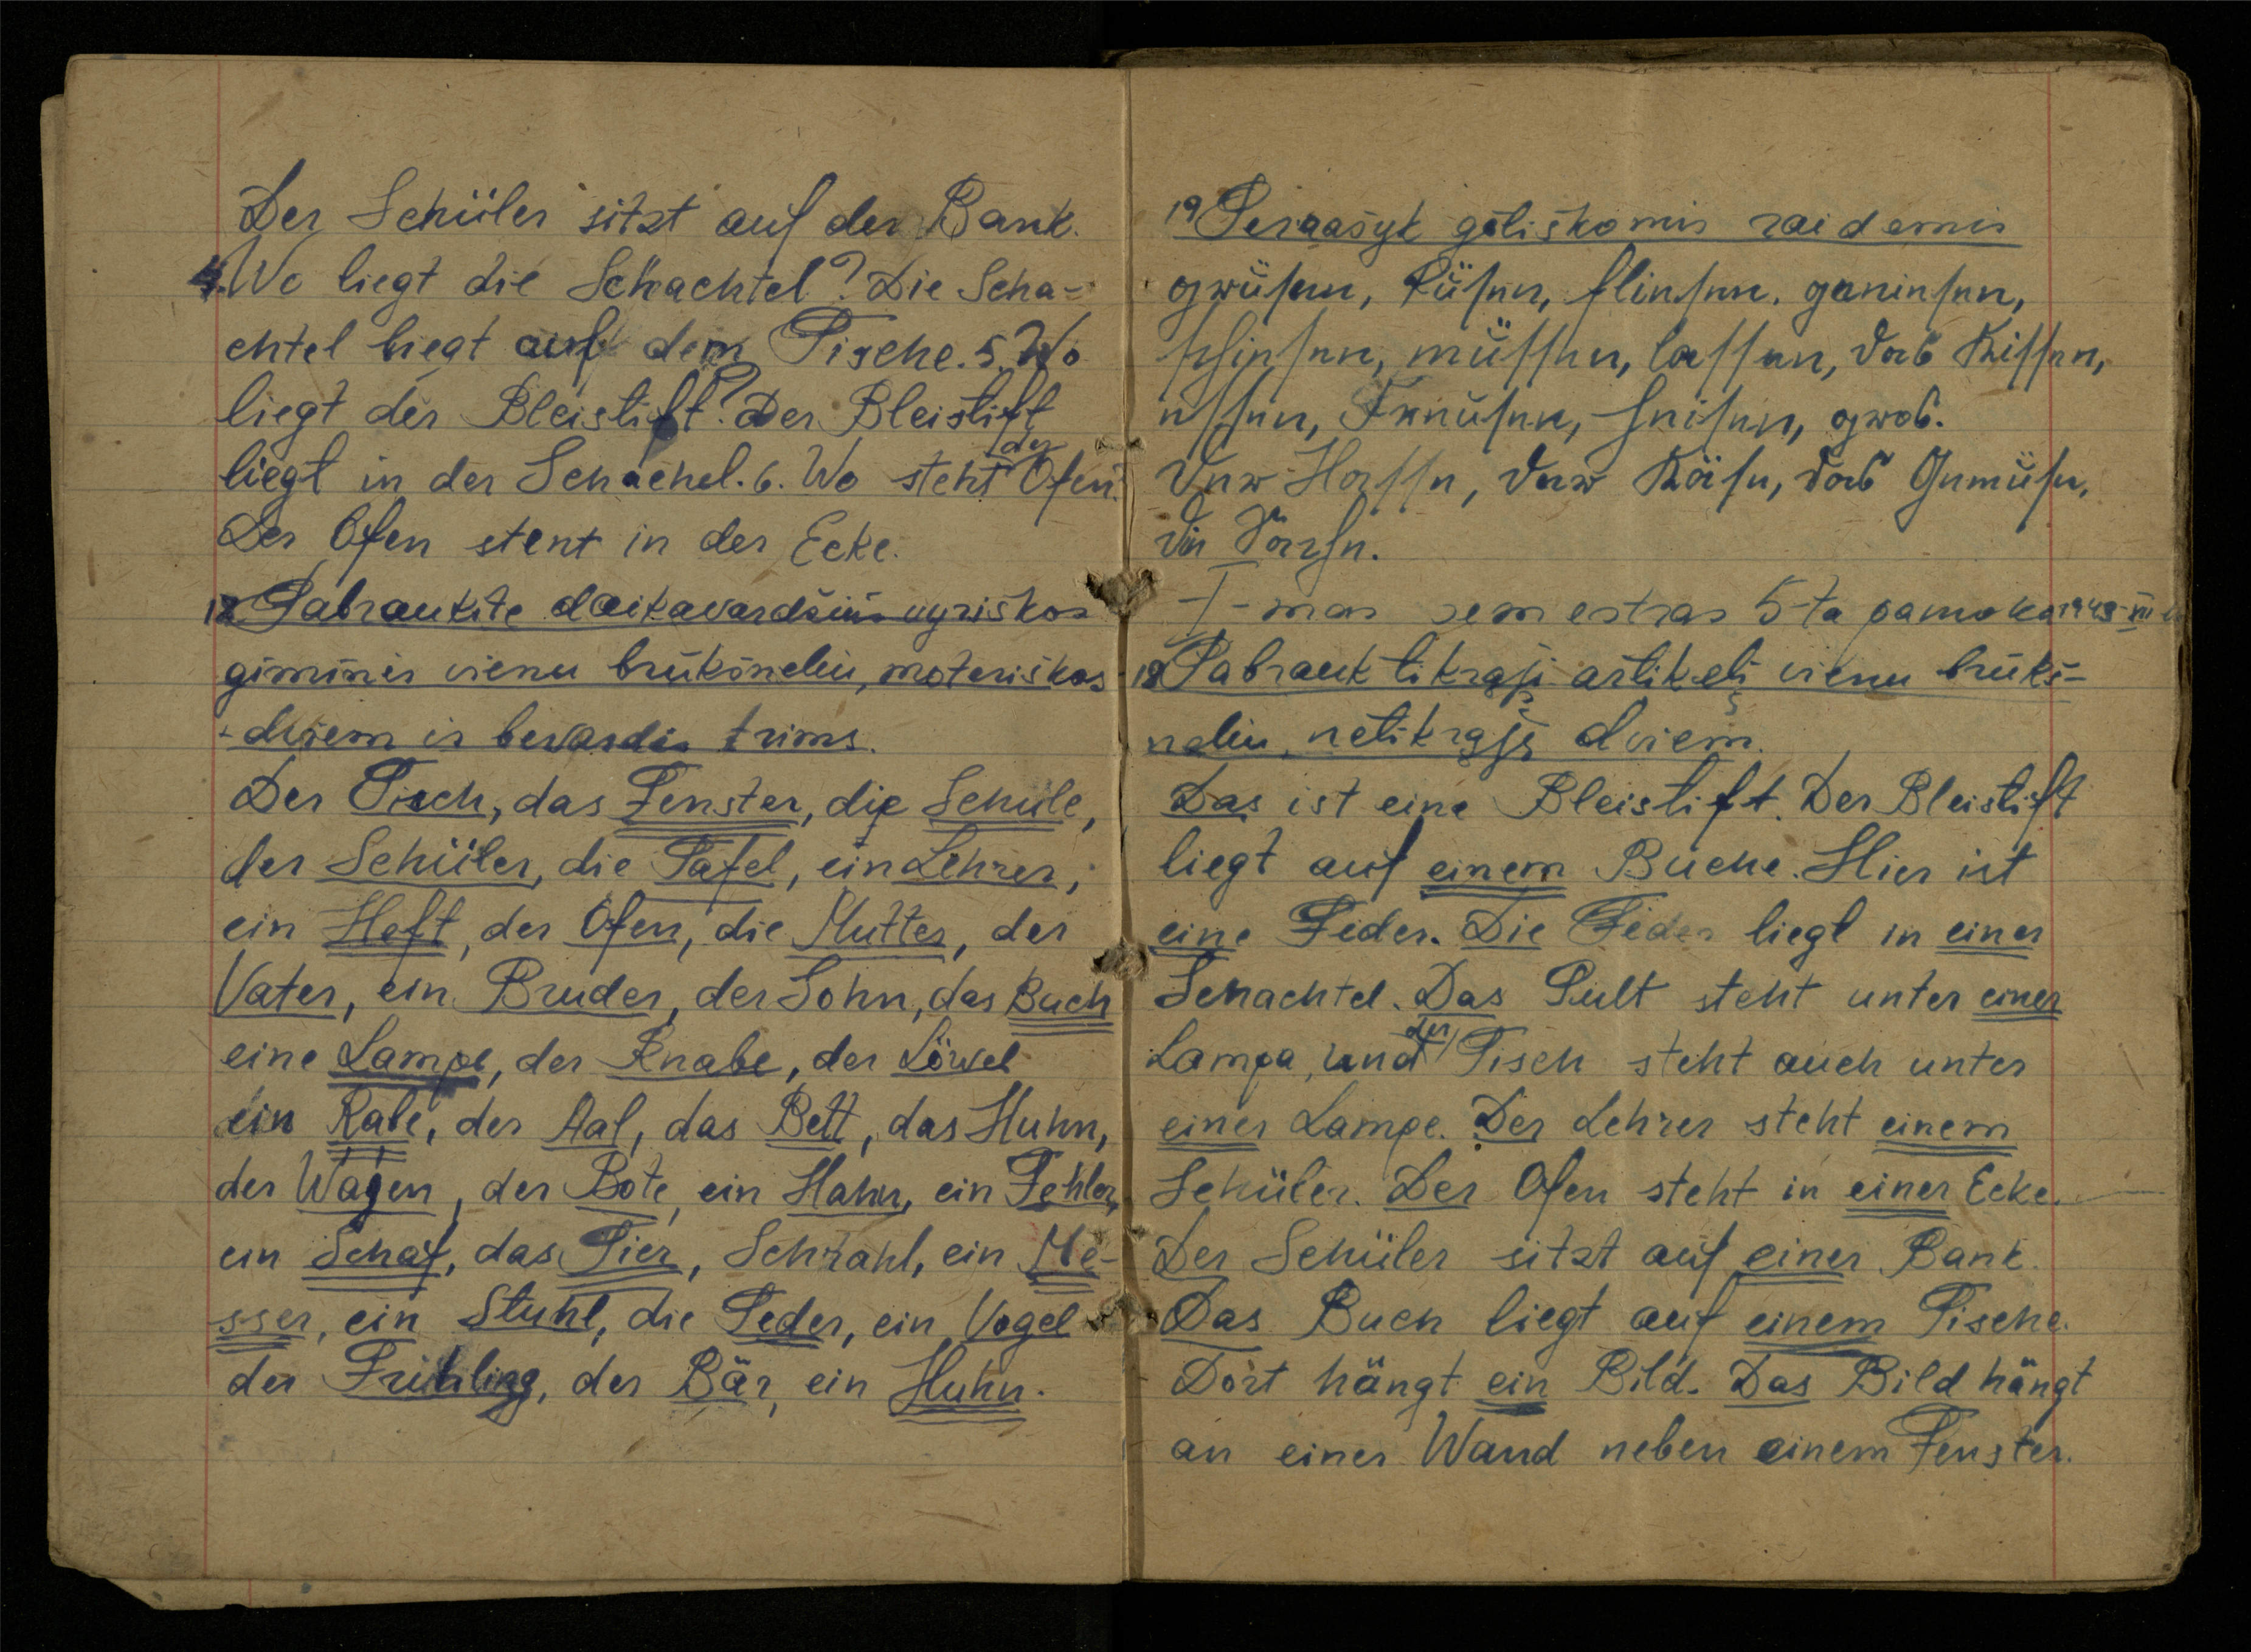 Der Schüler sitzt auf der Bank.
4. Wo liegt die Schachtel? Die Scha=
chtel liegt auf dem Tische. 5. Wo
liegt der Bleistift? Der Bleistift
liegt in der Schachel. 6. Wo steht der Ofen?
Der Ofen steht in der Ecke.
18 Pabraukite daikavardžius vyriškos
giminės vienu brūkšneliu, moteriškos
- dviem ir bevardės trims.
Der Tisch, das Fenster, die Schule,
der Schüler, die Tafel, ein Lehrer,
ein Heft, der Ofen, die Mutter, der
Vater, ein Bruder, der Sohn, das Buch
eine Lampe, der Knabe, der Löwel
ein Rabe, der Aal, das Bett, das Huhn,
der Wagen, der Bote, ein Hahn, ein Fehler,
ein Schaf, das Tier, Schrahl, ein Me-
sser, ein Stuhl, die Feder, ein Vogel
der Frühling, der Bär, ein Huhn.
19 Perrašyk gotiškomis raidemis
grüßen, küssen, fließen, genießen,
schießen, müssen, lassen, das Kissen,
essen, Freußen, heißen, groß.
Der Hasse, der Käse, das Gemüse,
die
I-mas semestras 5-ta pamoka 1949-XII
18 Pabrauk tikrąjį artikelį vienu brūkš-
neliu, netikrąjį dviem.
Das ist eine Bleistift. Der Bleistift
liegt auf einem Buche. Hier ist
eine Feder. Die Feder liegt in einer
Schachtel. Das Pult steht unter einer
Lampa, und der Tisch steht auch unter
einer Lampe. Der Lehrer steht einem
Schüler. Der Ofen steht in einer Ecke.
Der Schüler sitzt auf einer Bank.
Das Buch liegt auf einem Tische.
Dort hängt ein Bild. Das Bild hängt
an einer Wand neben einem Fenster.